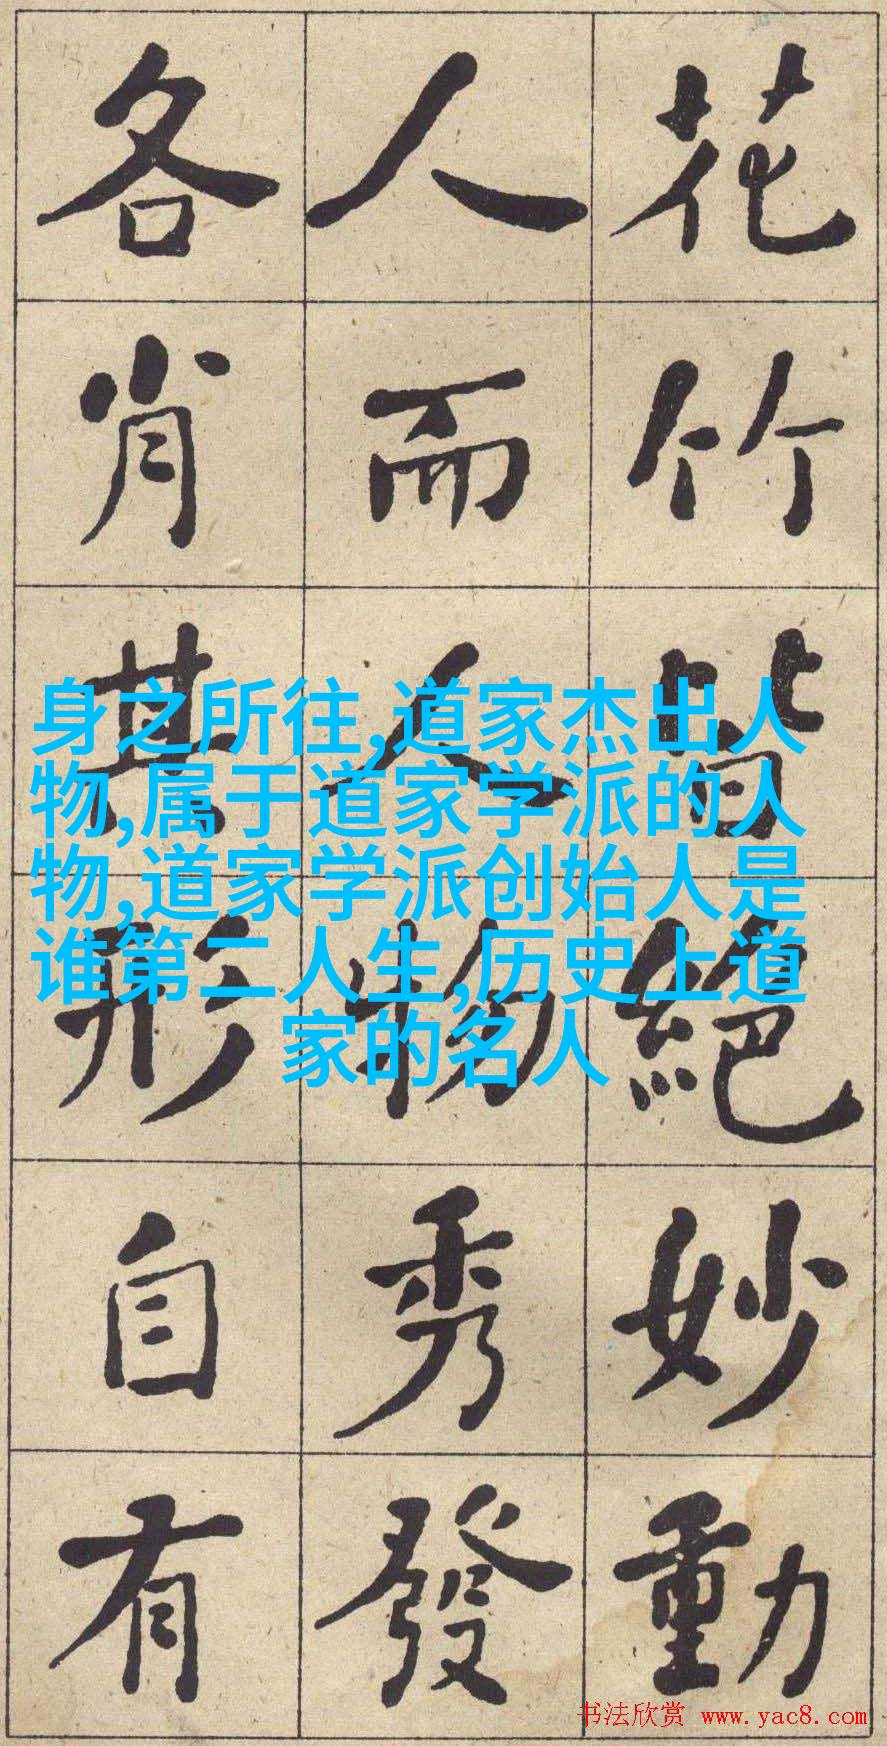 花竹皆絕妙動
人而人物秀發
各肖其形自有
身之所往,道家杰出人
物,属于道家学派的人
物,道家学派创始人是
谁第二人生,历史上道
家的名人
书法欣赏 www.yac8.com